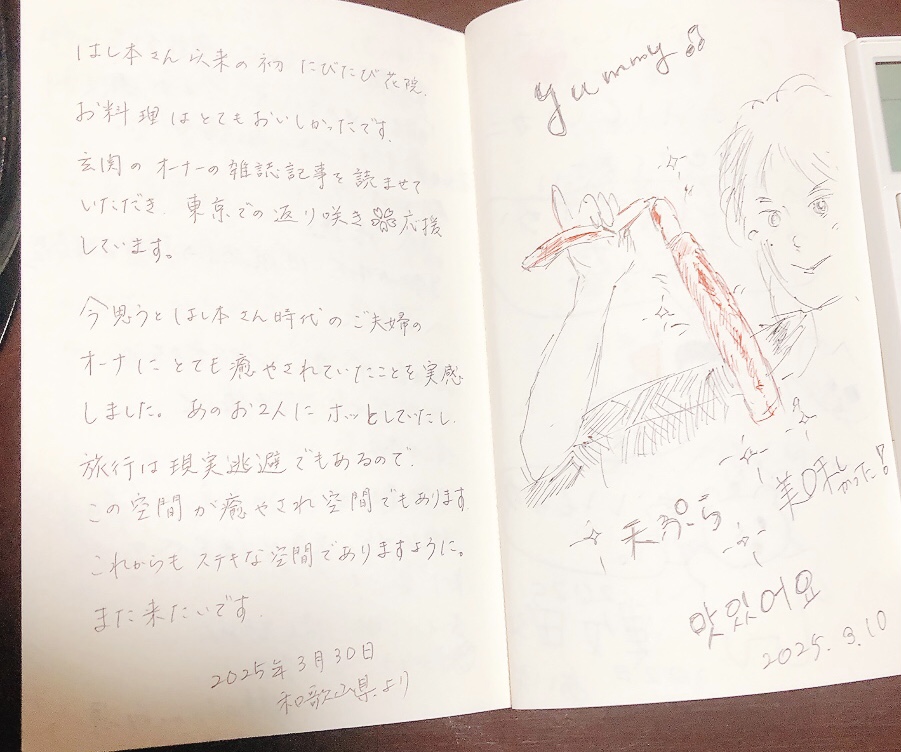 はし本さん以来の初 たびたび花院.
お料理はとてもおいしかったです.
玄関のオーナーの雑誌記事を読ませて
いただき. 東京での返り咲き 応援
しています。
今思うとはし本さん時代のご夫婦の
オーナにとても癒やされていたことを実感
しました。あのお2人にホッとしていたし.
旅行は現実逃避でもあるので.
この空間が癒やされ空間でもあります
これからもステキな空間でありますように。
また来たいです.
2025年3月30日
和歌山県より
yummy♫
天ぷら
美味しかった!
맛있어요
2025. 3. 10